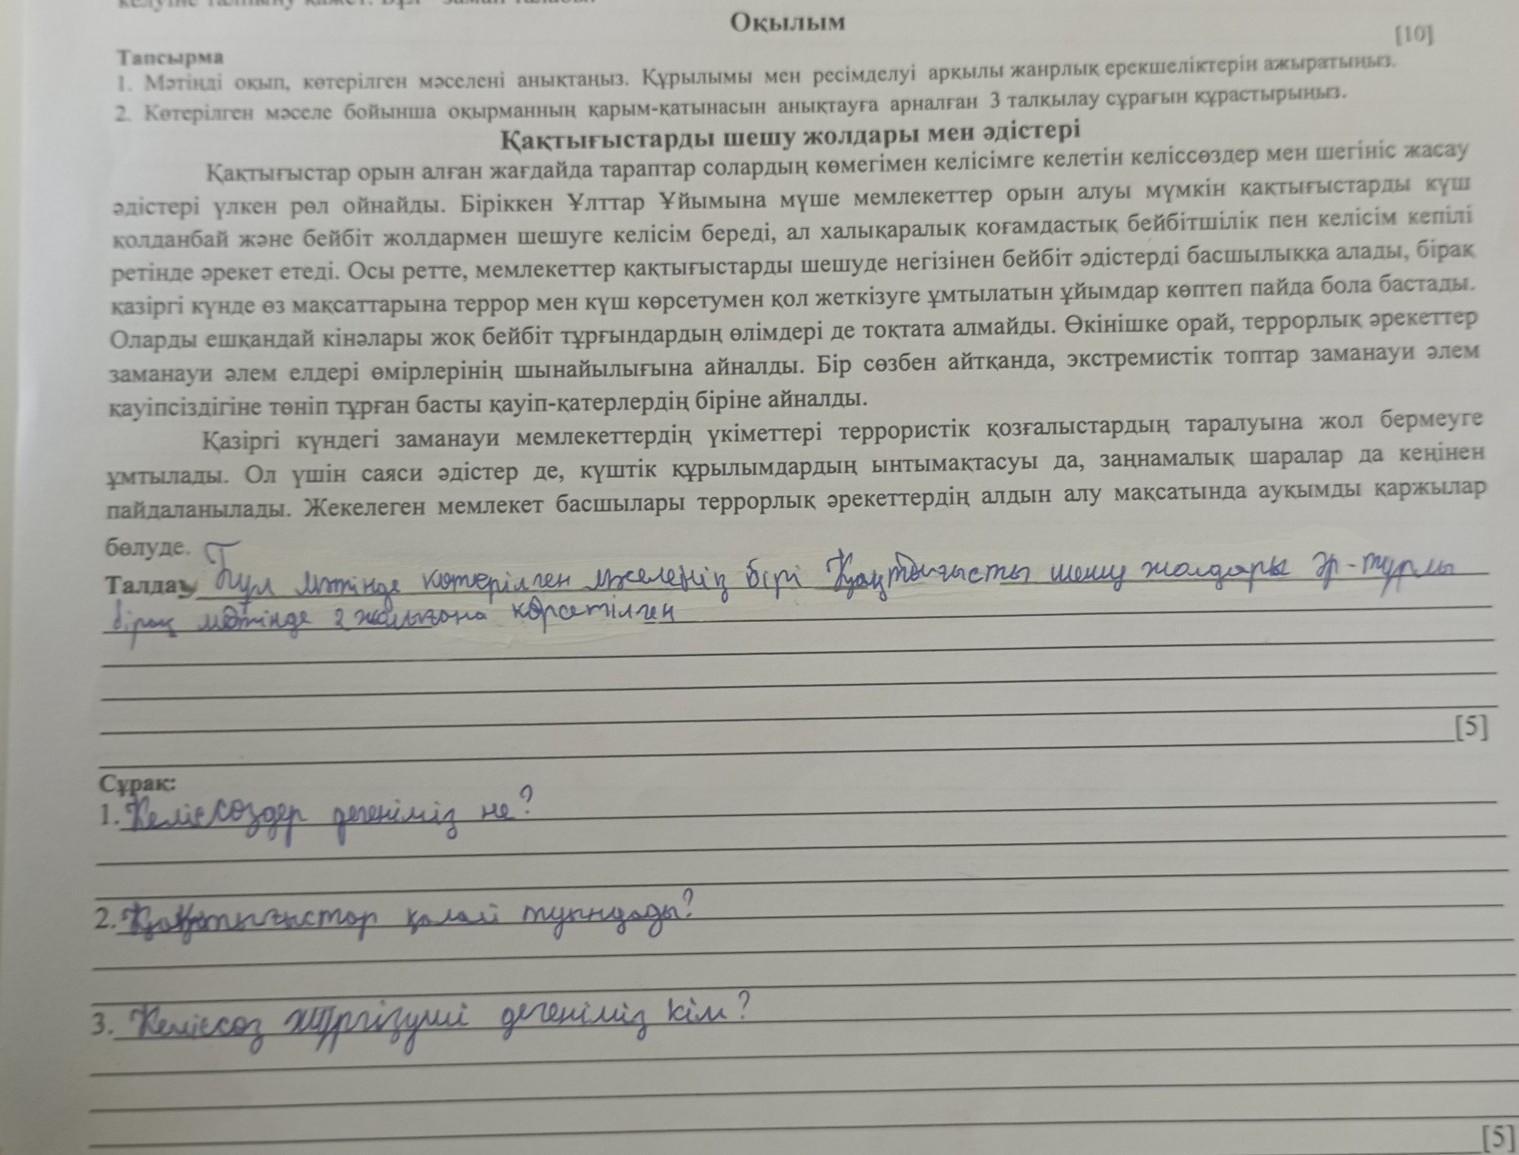 Оқылым
[10]
Тапсырма
1. Мәтінді оқып, көтерілген мәселені анықтаңыз. Құрылымы мен ресімделуі арқылы жанрлық ерекшеліктерін ажыратыңыз.
2. Көтерілген мәселе бойынша оқырманның қарым-қатынасын анықтауға арналған 3 талқылау сұрағын құрастырыңыз.
Қақтығыстарды шешу жолдары мен әдістері
Қақтығыстар орын алған жағдайда тараптар солардың көмегімен келісімге келетін келіссөздер мен шегініс жасау
әдістері үлкен рөл ойнайды. Біріккен Ұлттар Ұйымына мүше мемлекеттер орын алуы мүмкін қақтығыстарды күш
қолданбай және бейбіт жолдармен шешуге келісім береді, ал халықаралық қоғамдастық бейбітшілік пен келісім кепілі
ретінде әрекет етеді. Осы ретте, мемлекеттер қақтығыстарды шешуде негізінен бейбіт әдістерді басшылыққа алады, бірақ
қазіргі күнде өз мақсаттарына террор мен күш көрсетумен қол жеткізуге ұмтылатын ұйымдар көптеп пайда бола бастады.
Оларды ешқандай кінәлары жоқ бейбіт тұрғындардың өлімдері де тоқтата алмайды. Өкінішке орай, террорлық әрекеттер
заманауи әлем елдері өмірлерінің шынайылығына айналды. Бір сөзбен айтқанда, экстремистік топтар заманауи әлем
қауіпсіздігіне төніп тұрған басты қауіп-қатерлердің біріне айналды.
Қазіргі күндегі заманауи мемлекеттердің үкіметтері террористік қозғалыстардың таралуына жол бермеуге
ұмтылады. Ол үшін саяси әдістер де, күштік құрылымдардың ынтымақтасуы да, заңнамалық шаралар да кеңінен
пайдаланылады. Жекелеген мемлекет басшылары террорлық әрекеттердің алдын алу мақсатында ауқымды қаржылар
бөлуде.
Талдау Бұл мәтінде көтерілген мәселенің бірі Қақтығысты шешу жолдары әр-түрлі
бірақ мәтінде 2 жолығана көрсетілген
[5]
Сұрақ:
1. Келіссөздер дегеніміз не?
2. Қақтығыстар қалай туындады?
3. Келіссөз жүргізуші дегеніміз кім?
[5]